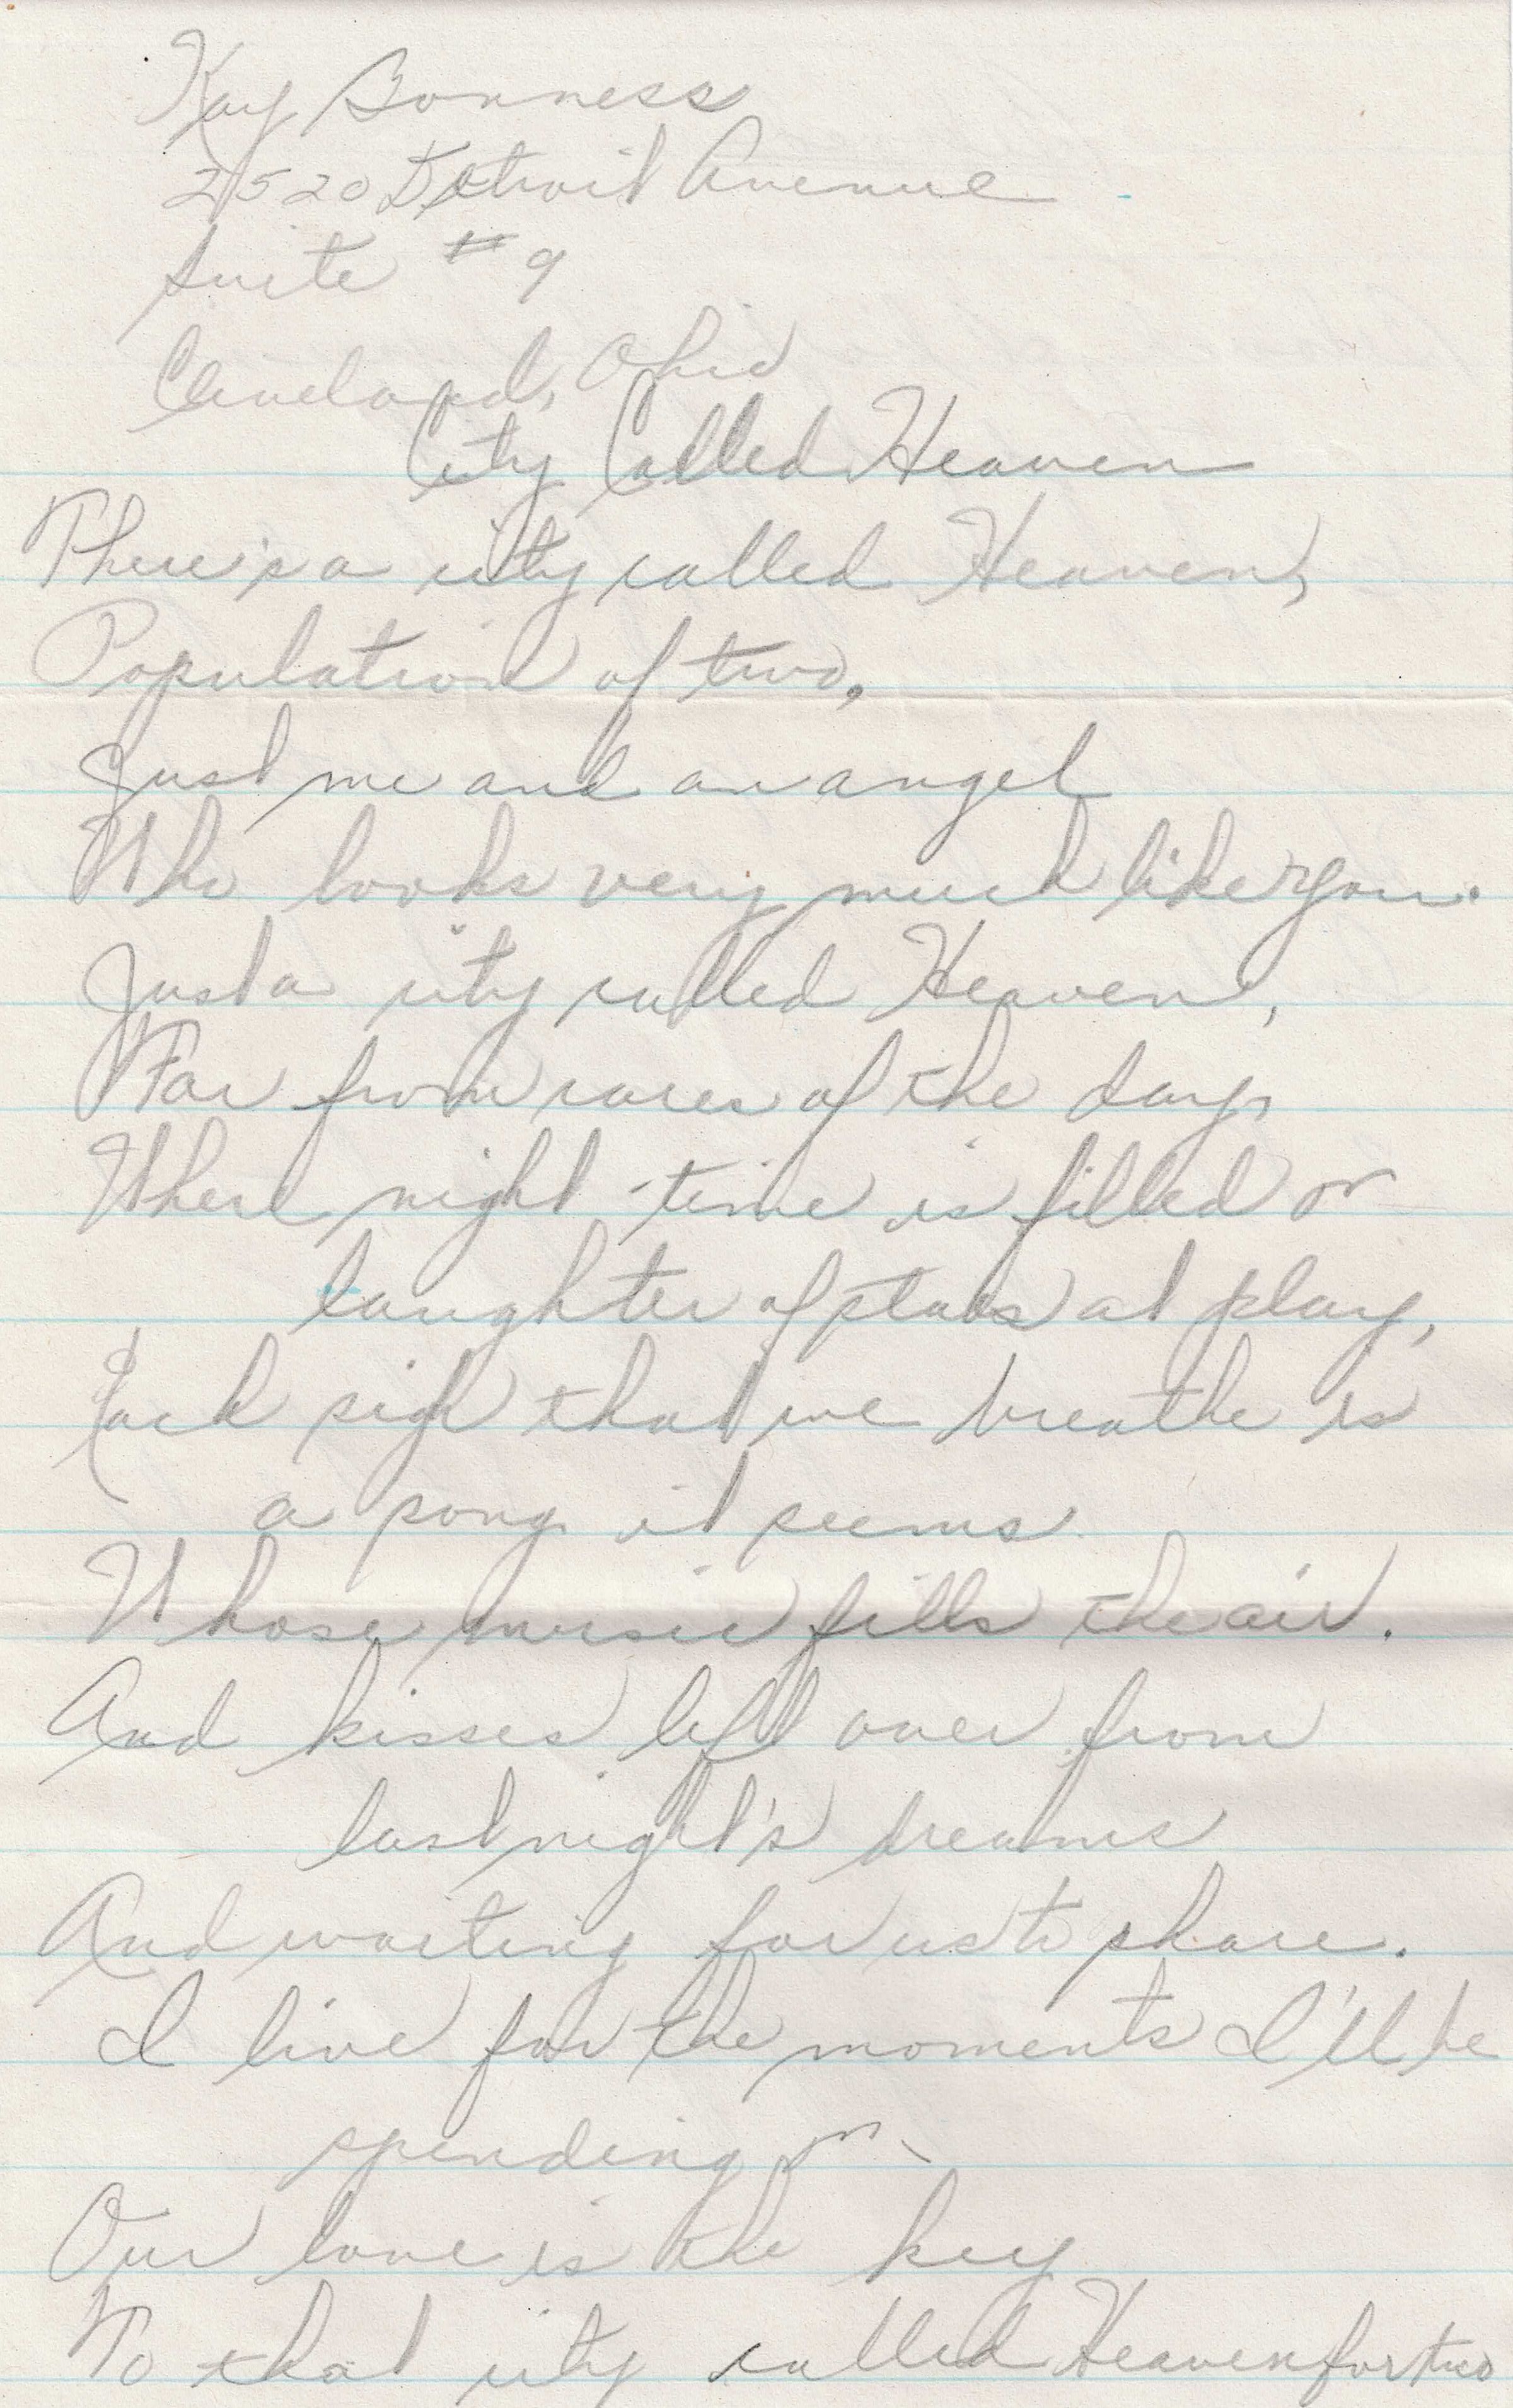 Kay Bonness
2520 Detroit Avenue
Suite #9
Cleveland, Ohio
City Called Heaven
There's a city called Heaven,
Population of two,
Just me and an angel
Who looks very much like you.
Just a city called Heaven,
Far from cares of the day,
Where night-time is filled
laughter of stars at play,
Each sigh that we breathe is
a song it seems
Whose music fills the air.
And kisses left over from
last night's dreams
And waiting for us to share.
I live for the moments I'll be
spending
Our love is the key
To that city called Heaven for two